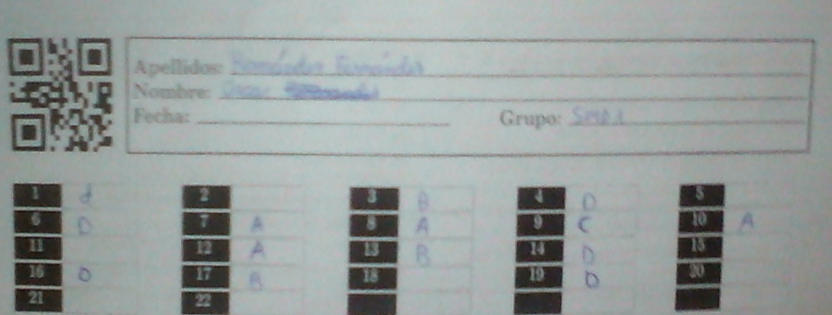 Apellidos: Hernández Fernández
Nombre: Oscar
Fecha:
Grupo: SMD1
1 d 2 3 B 4 D 5
6 D 7 A 8 A 9 C 10 A
11 12 A 13 B 14 D 15
16 D 17 B 18 19 D 20
21 22